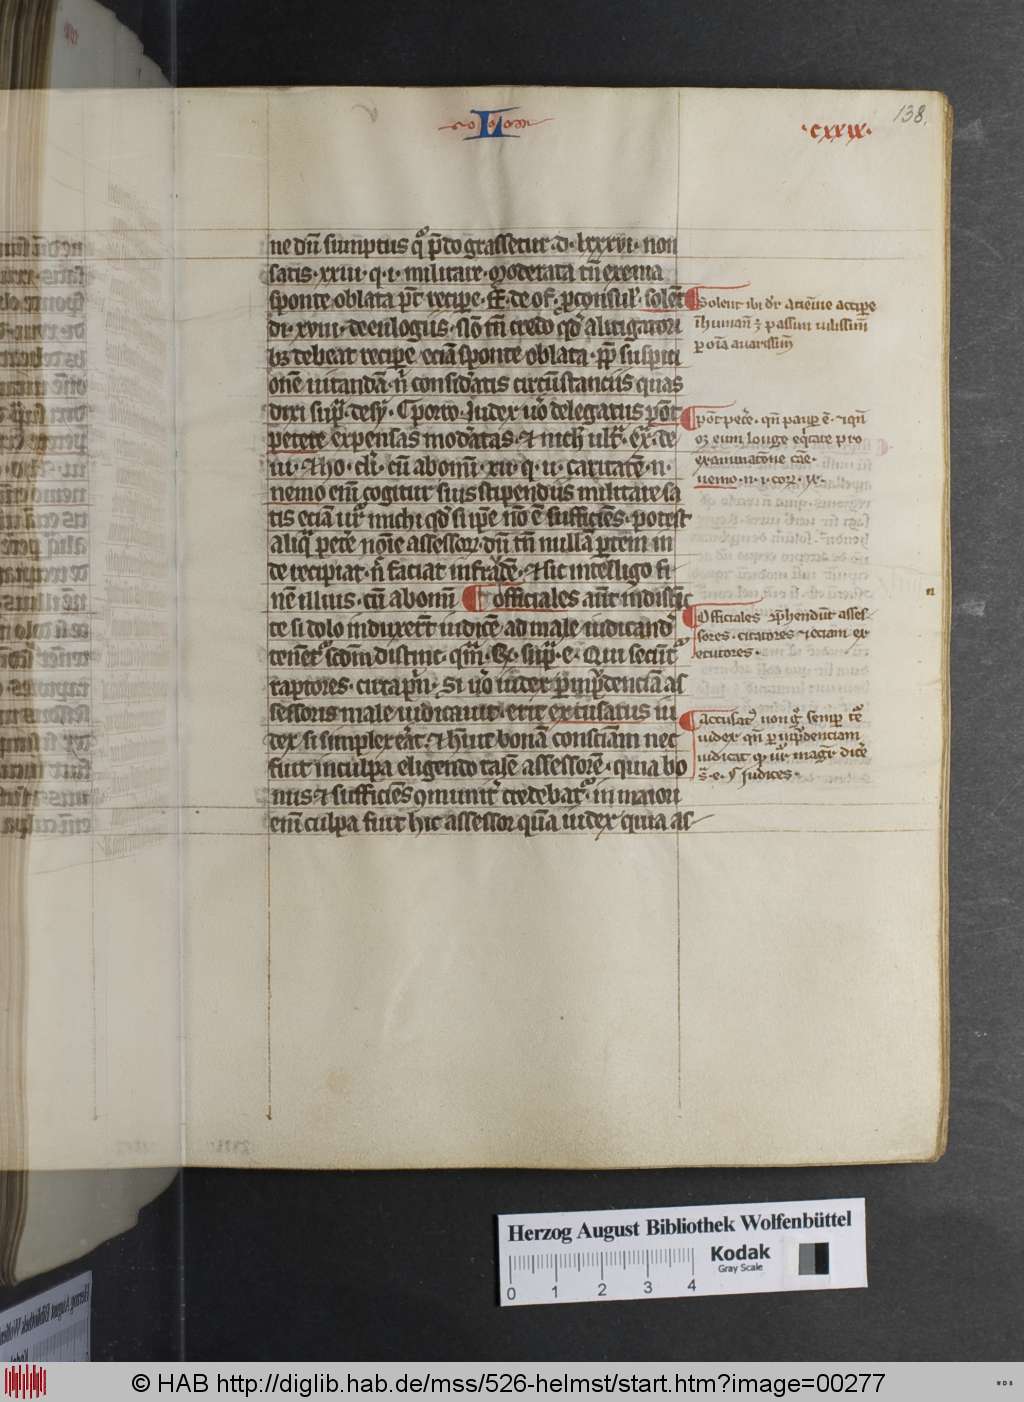 I
·cxxix·
138,
ne dn̄ sumptus qͦ p̄to grassetur. d. lxxxvi. non
satis. xxiii. q. i. militare. Moderata tn̄ exenia
sponte oblata pt̄ recipe. ff. de of. proconsul'. solent
di. xviii. de eulogiis. Nō tn̄ credo qd̓ a litigatori
bꝫ debeat recipe eciā sponte oblata. ꝓp̄ suspici
onē uitandā. n̄ considatis circūstanciis quas
dixi sup̄. desꝭ. ¶ Porro. Iudex uͦ delegatus pōt
petere expensas modatas. et nichͥ ultͣ. Ex. de
ui. et ho. cl̓i. cū ab omni. xii. q. ii. caritatē. n.
nemo eni cogitur suis stipendiis militare sa
tis eciā ur̄ michi qd̓ si ipe nō ē sufficiēs. potest
aliqͥ petē noīe assessorꝭ. dn̄ tn̄ nullā ptem in
de recipiat. n̄ faciat infrādē. et sic intelligo fi
nē illius. cū ab omni ¶ officiales aūt indistīc
te si dolo induxerūt iudicē ad male iudicand̓
tenent̓ scdm distinc. qm̄. Ex. sup̄. e. Qui secūt̓
raptores. circa p̄n̄. Si uͦ iudex p inpͬdenciā as
sessoris male iudicauit. erit excusatus iu
dex si simplex erat. et hūit bonā consciam nec
fuit in culpa eligendo talē assessorē. quia bo
nus et sufficiēs cōmunit̓ credebat̓. in maiori
eni culpa fuit hic assessor quā iudex quia as
Solent ibi dr̄ a tēnie accipe
īhumanū ꝫ passim uilissimū
p oīa auarissimū
pōt petē. qn̄ paup ē. et qn̄
oꝫ eum longe eqͥtare pro
examinatione cāe.
nemo. n. i. corꝭ. ix.
n
Officiales ꝯprehendūt asses-
sores. citatores et eciam ex
ecutores.
Accusatͬ non qͬ semp tē
iudex qn̄ p inpͬdenciam
iudicat qͦ ur̄ magͬ dicē
s. e. ¶ Iudices.
Herzog August Bibliothek Wolfenbüttel
0 1 2 3 4
Kodak
Gray Scale
© HAB http://diglib.hab.de/mss/526-helmst/start.htm?image=00277